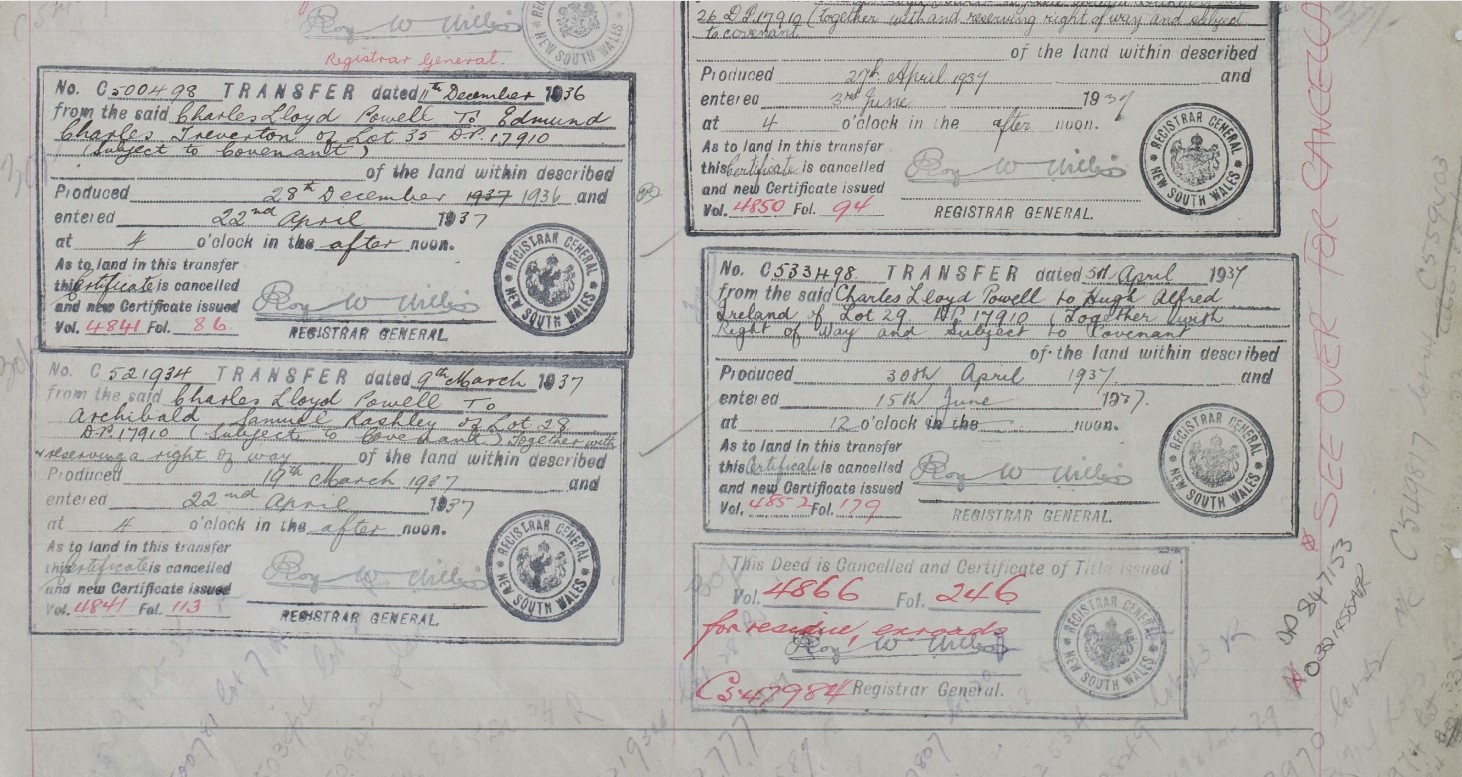 Roy W Willis
NEW SOUTH WALES
Registrar General.
No. C 500498 TRANSFER dated 11th December 1936
from the said Charles Lloyd Powell To Edmund
Charles Treverton of Lot 35 D.P. 17910
(subject to Covenant)
of the land within described
Produced 28th December 1937 1936 and
entered 22nd April 1937
at 4 o'clock in the after noon.
As to land in this transfer
this Certificate is cancelled
and new Certificate issued
Vol. 4841 Fol. 86
Roy W Willis
REGISTRAR GENERAL.
REGISTRAR GENERAL NEW SOUTH WALES
No. C 521934 TRANSFER dated 9th March 1937
from the said Charles Lloyd Powell To
Archibald Samuel Rashley of Lot 28
D.P. 17910 (Subject to Covenant) Together with
reserving a right of way of the land within described
Produced 19th March 1937 and
entered 22nd April 1937
at 4 o'clock in the after noon.
As to land in this transfer
this Certificate is cancelled
and new Certificate issued
Vol. 4841 Fol. 113
Roy W Willis
REGISTRAR GENERAL.
REGISTRAR GENERAL NEW SOUTH WALES
26 D.P. 17910 (together with and reserving right of way and subject
to covenant
of the land within described
Produced 27th April 1937 and
entered 3rd June 1937
at 4 o'clock in the after noon.
As to land in this transfer
this Certificate is cancelled
and new Certificate issued
Vol. 4850 Fol. 94
Roy W Willis
REGISTRAR GENERAL.
REGISTRAR GENERAL NEW SOUTH WALES
No. C 533498 TRANSFER dated April 1937
from the said Charles Lloyd Powell to Hugh Alfred
Ireland of Lot 29 D.P. 17910 (Together with
Right of Way and Subject to Covenant
of the land within described
Produced 30th April 1937. and
entered 15th June 1937.
at 12 o'clock in the noon.
As to land in this transfer
this Certificate is cancelled
and new Certificate issued
Vol. 4852 Fol. 179
Roy W Willis
REGISTRAR GENERAL.
REGISTRAR GENERAL NEW SOUTH WALES
This Deed is Cancelled and Certificate of Title issued
Vol. 4866 Fol. 246
for residue, ex roads
Roy W Willis
C547984 Registrar General.
REGISTRAR GENERAL NEW SOUTH WALES
SEE OVER FOR
DP 847153
C559403
C54987